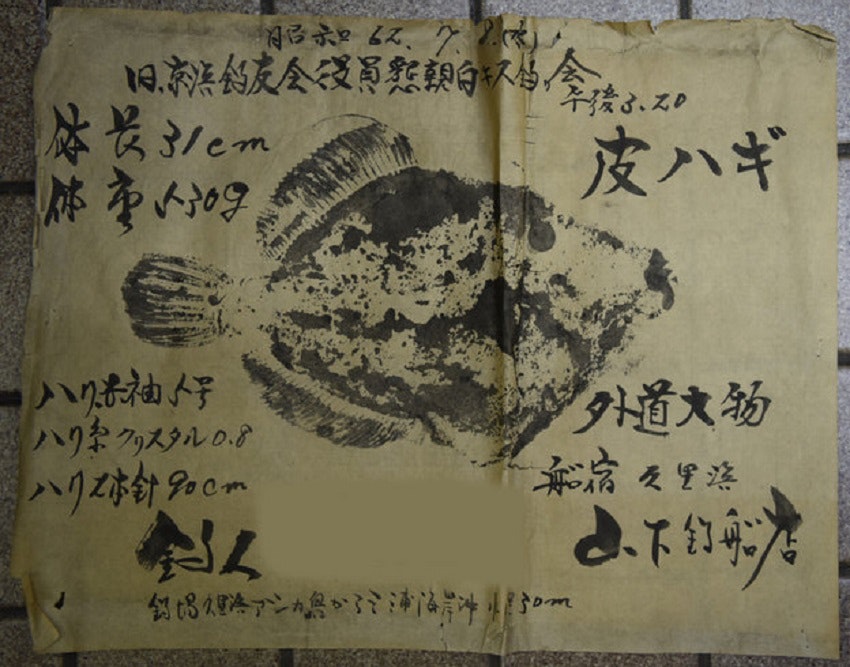 昭和62.7.8.(水)
旧京浜釣友会役員懇親白キス釣会
午後3.20
皮ハギ
体長31cm
体重530g
ハリ赤袖5号
ハリ糸クリスタル0.8
ハリ2本針90cm
外道大物
船宿 久里浜
山下釣船店
釣人
釣場久里浜アシカ島から三浦海岸沖